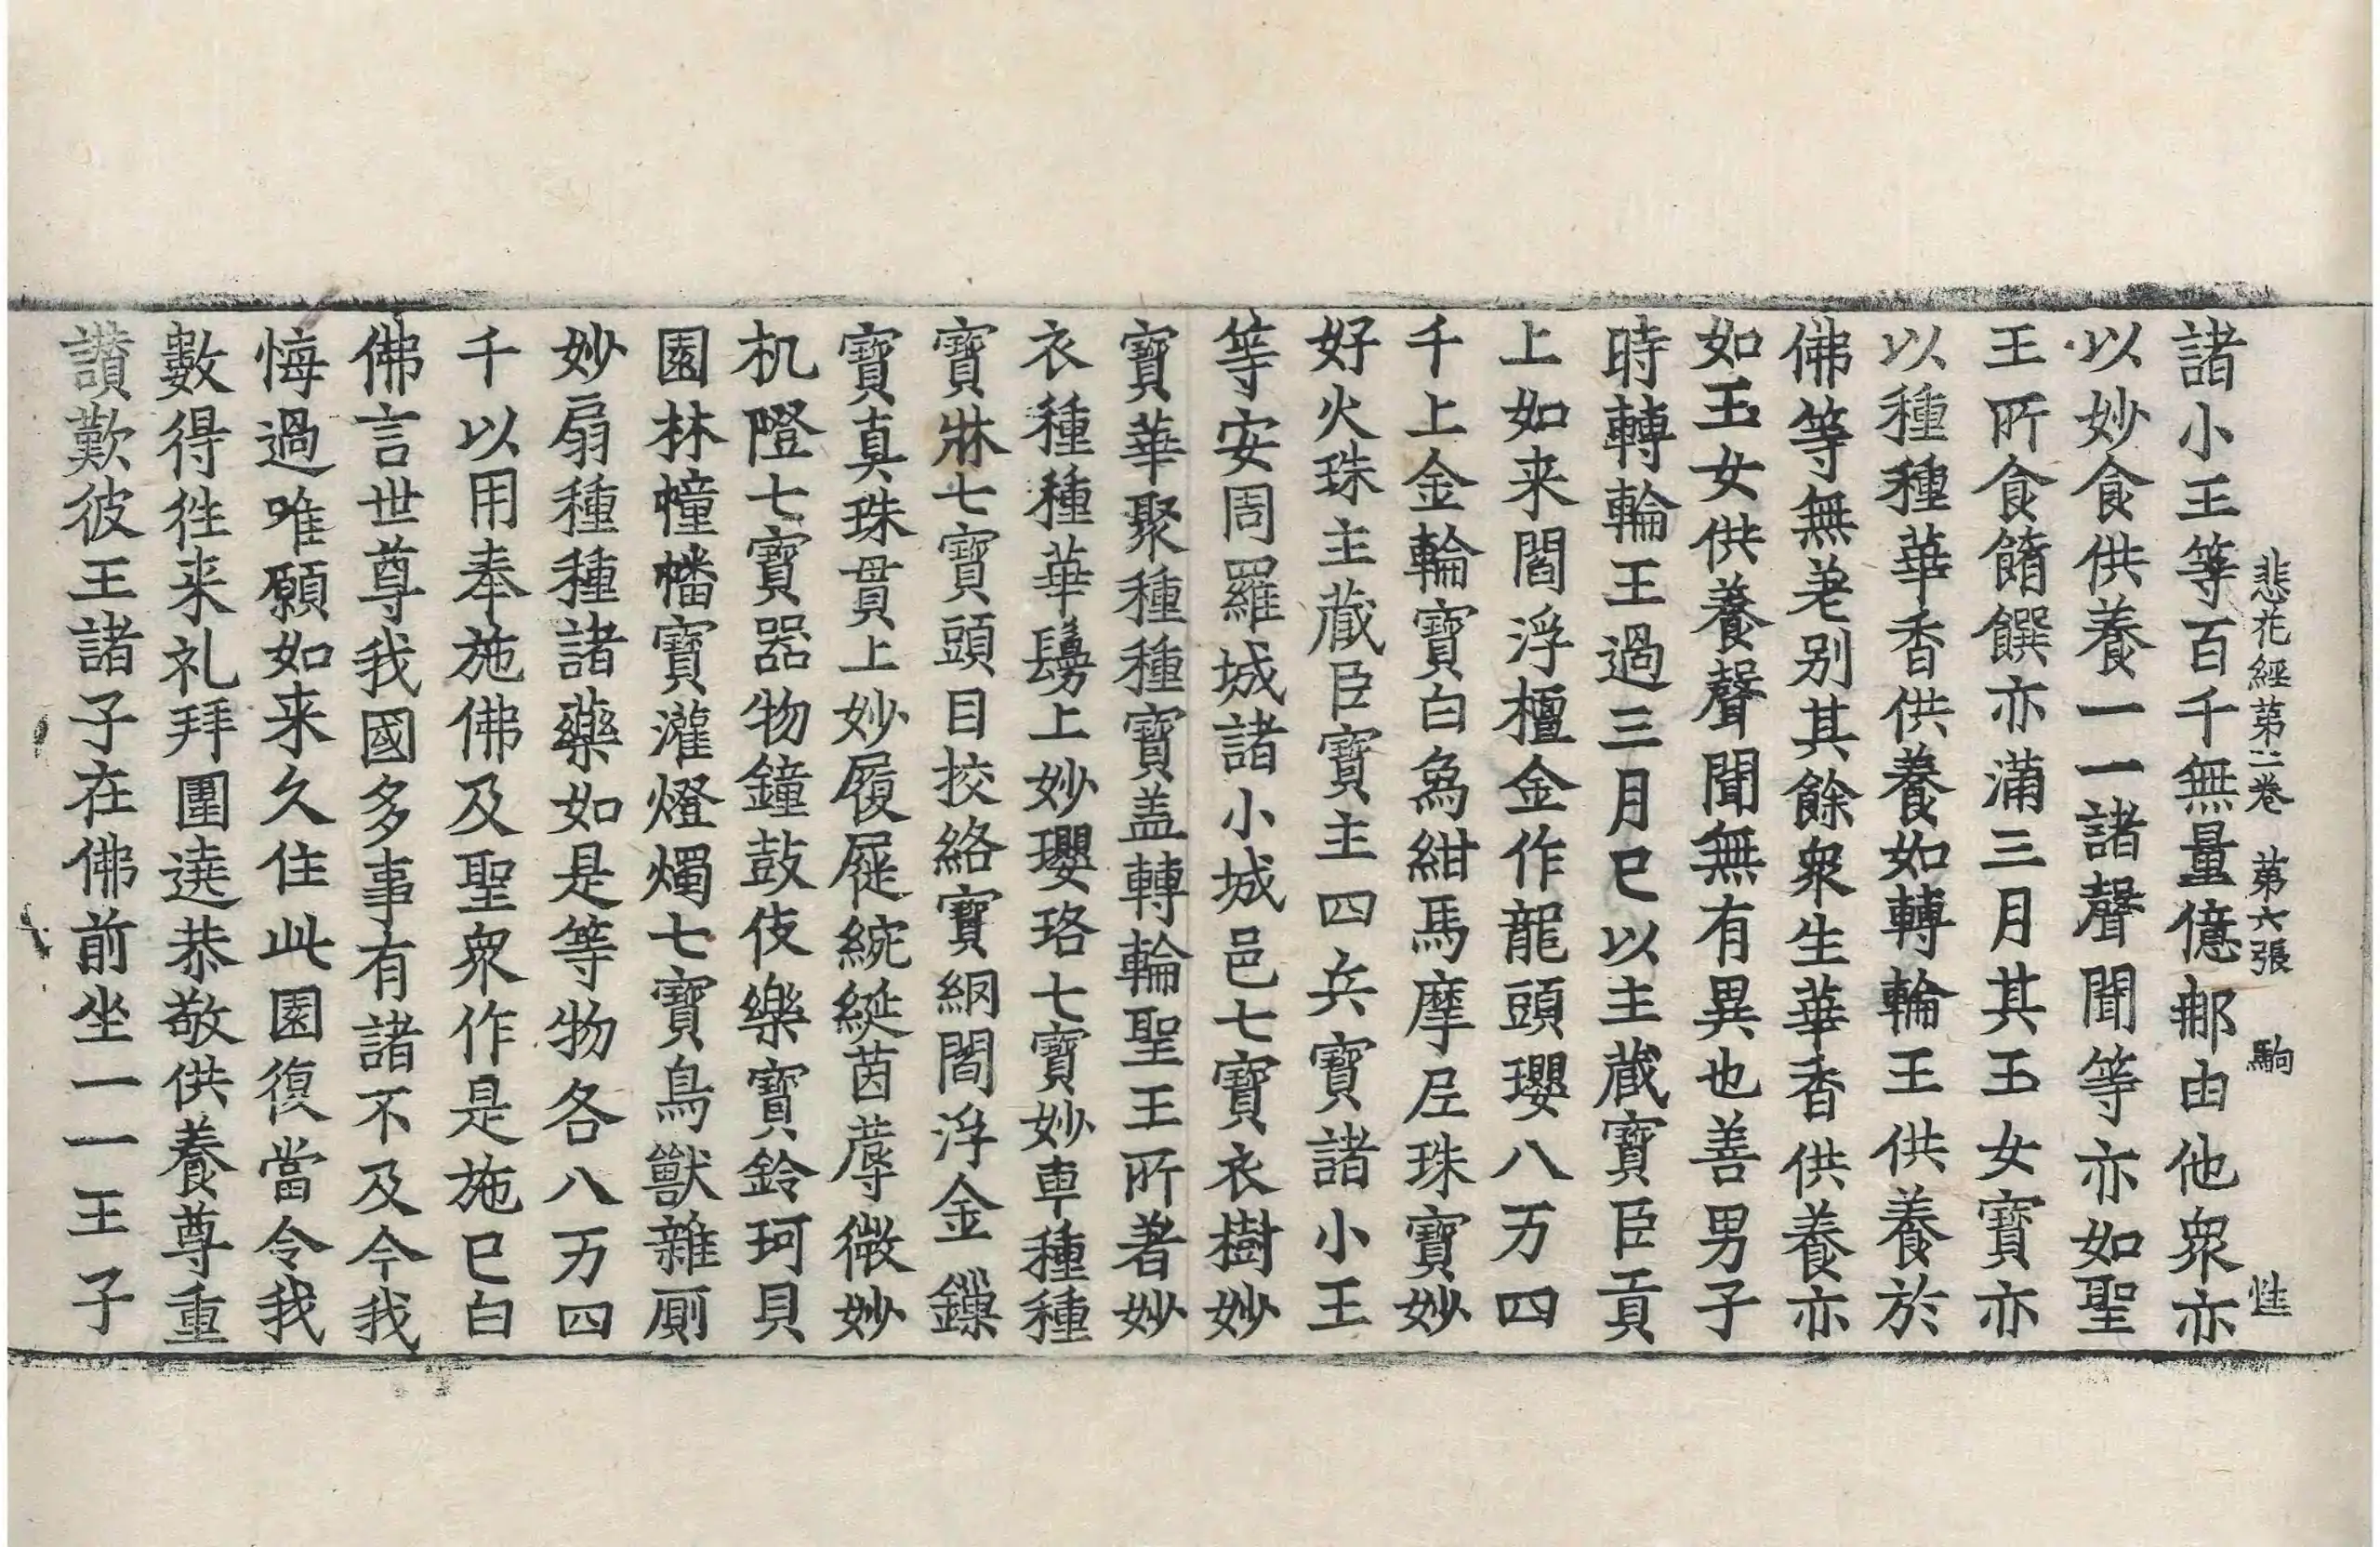 悲花經第二卷 第六張 駒 惟
諸小王等百千無量億那由他衆亦
以妙食供養一一諸聲聞等亦如聖
王所食餚饌亦滿三月其玉女寶亦
以種種華香供養如轉輪王供養於
佛等無差别其餘衆生華香供養亦
如玉女供養聲聞無有異也善男子
時轉輪王過三月已以主蔵寶臣貢
上如来閻浮檀金作龍頭瓔八万四
千上金輪寶白象紺馬摩尼珠寶妙
好火珠主蔵臣寶主四兵寶諸小王
等安周羅城諸小城邑七寶衣樹妙
寶華聚種種寶盖轉輪聖王所著妙
衣種種華鬘上妙瓔珞七寶妙車種種
寶牀七寶頭目挍絡寶網閻浮金鏁
寶真珠貫上妙履屣綩綖茵蓐微妙
机隥七寶器物鐘鼓伎樂寶鈴珂貝
園林幢幡寶灌燈燭七寶鳥獸雜廁
妙扇種種諸藥如是等物各八万四
千以用奉施佛及聖衆作是施已白
佛言世尊我國多事有諸不及今我
悔過唯願如来久住此園復當令我
數得徃来礼拜圍遶恭敬供養尊重
讃歎彼王諸子在佛前坐一一王子